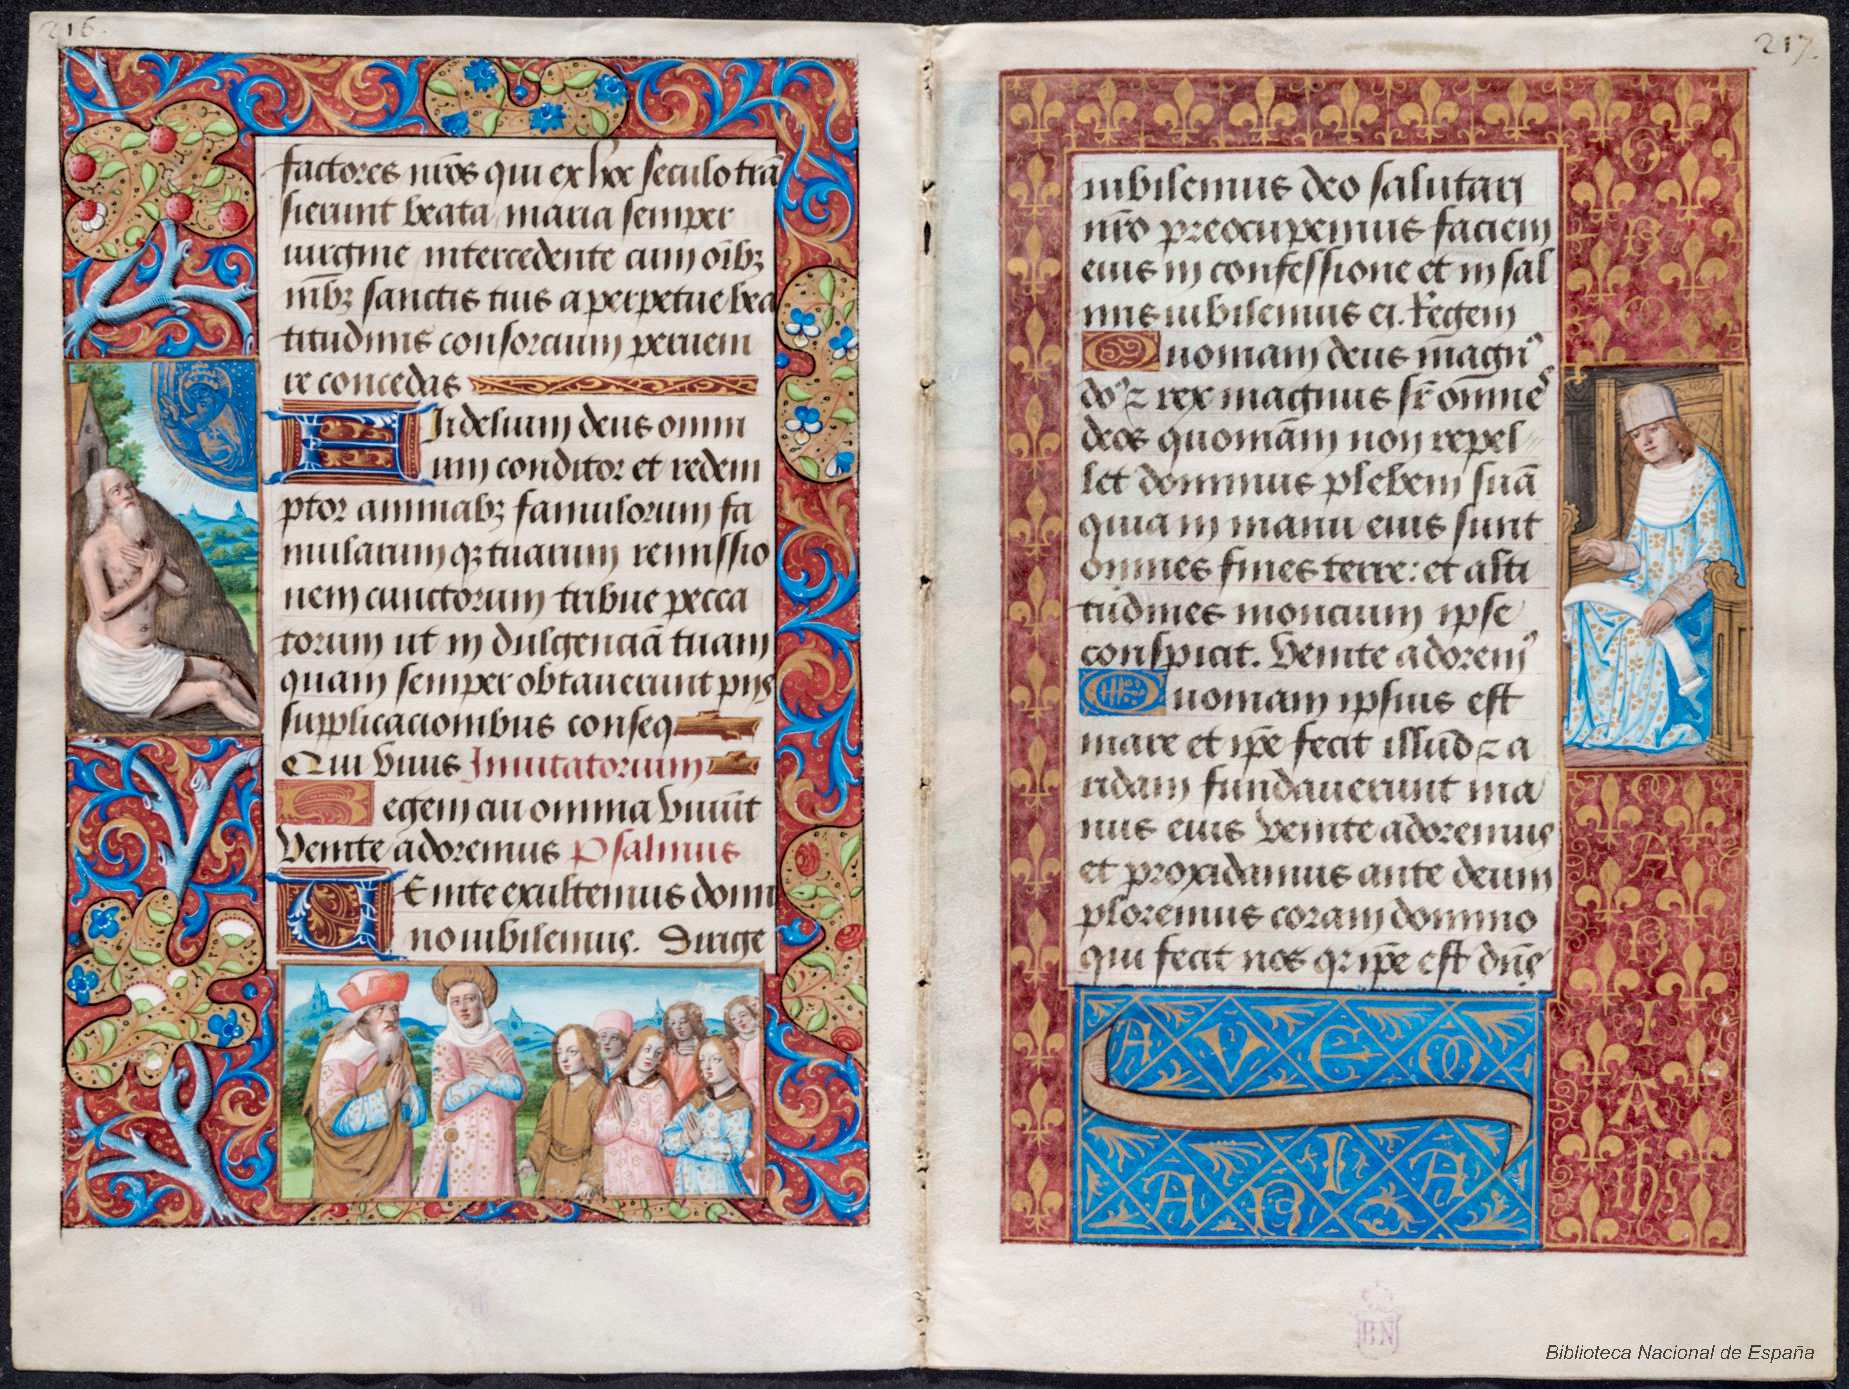 216.
factores nr̄os qui ex hoc seculo trā
sierunt beata maria semper
uirgine intercedente cum oībꝫ
sanctis tuis a perpetue bea
titudinis consorcium perueni
re concedas
Fidelium deus omni
um conditor et redem
ptor animabꝫ famulorum fa
mularum qꝫ tuarum remissio
nem cunctorum tribue pecca
torum ut in dulgenciā tuam
quam semper obtauerunt pijs
supplicacionibus conseq
Qui viuis Inuitatorium
Regem cui omnia viuūt
Venite adoremus Psalmus
Uenite exultemus domi
no iubilemus. Dirige
217.
iubilemus deo salutari
nr̄o preocupemus faciem
eius in confessione et in sal
mis iubilemus ei. Regem
Quoniam deus magnꝰ
doꝰ ⁊ rex magnus sr̄ omnes
deos quoniām non repel
let dominus plebem suā
quia in manu eius sunt
omnes fines terre: et alti
tudines moncium ipse
conspicit. Venite adoremꝰ
Quoniam ipsius est
mare et ip̄e fecit illud ⁊ a
ridam fundauerunt ma
nus eius Venite adoremus
et proxidamus ante deum
ploremus coram domino
qui fecit nos qr ip̄e est dn̄s
AVE M
ARIA
MARIA
ihs
BN
Biblioteca Nacional de España